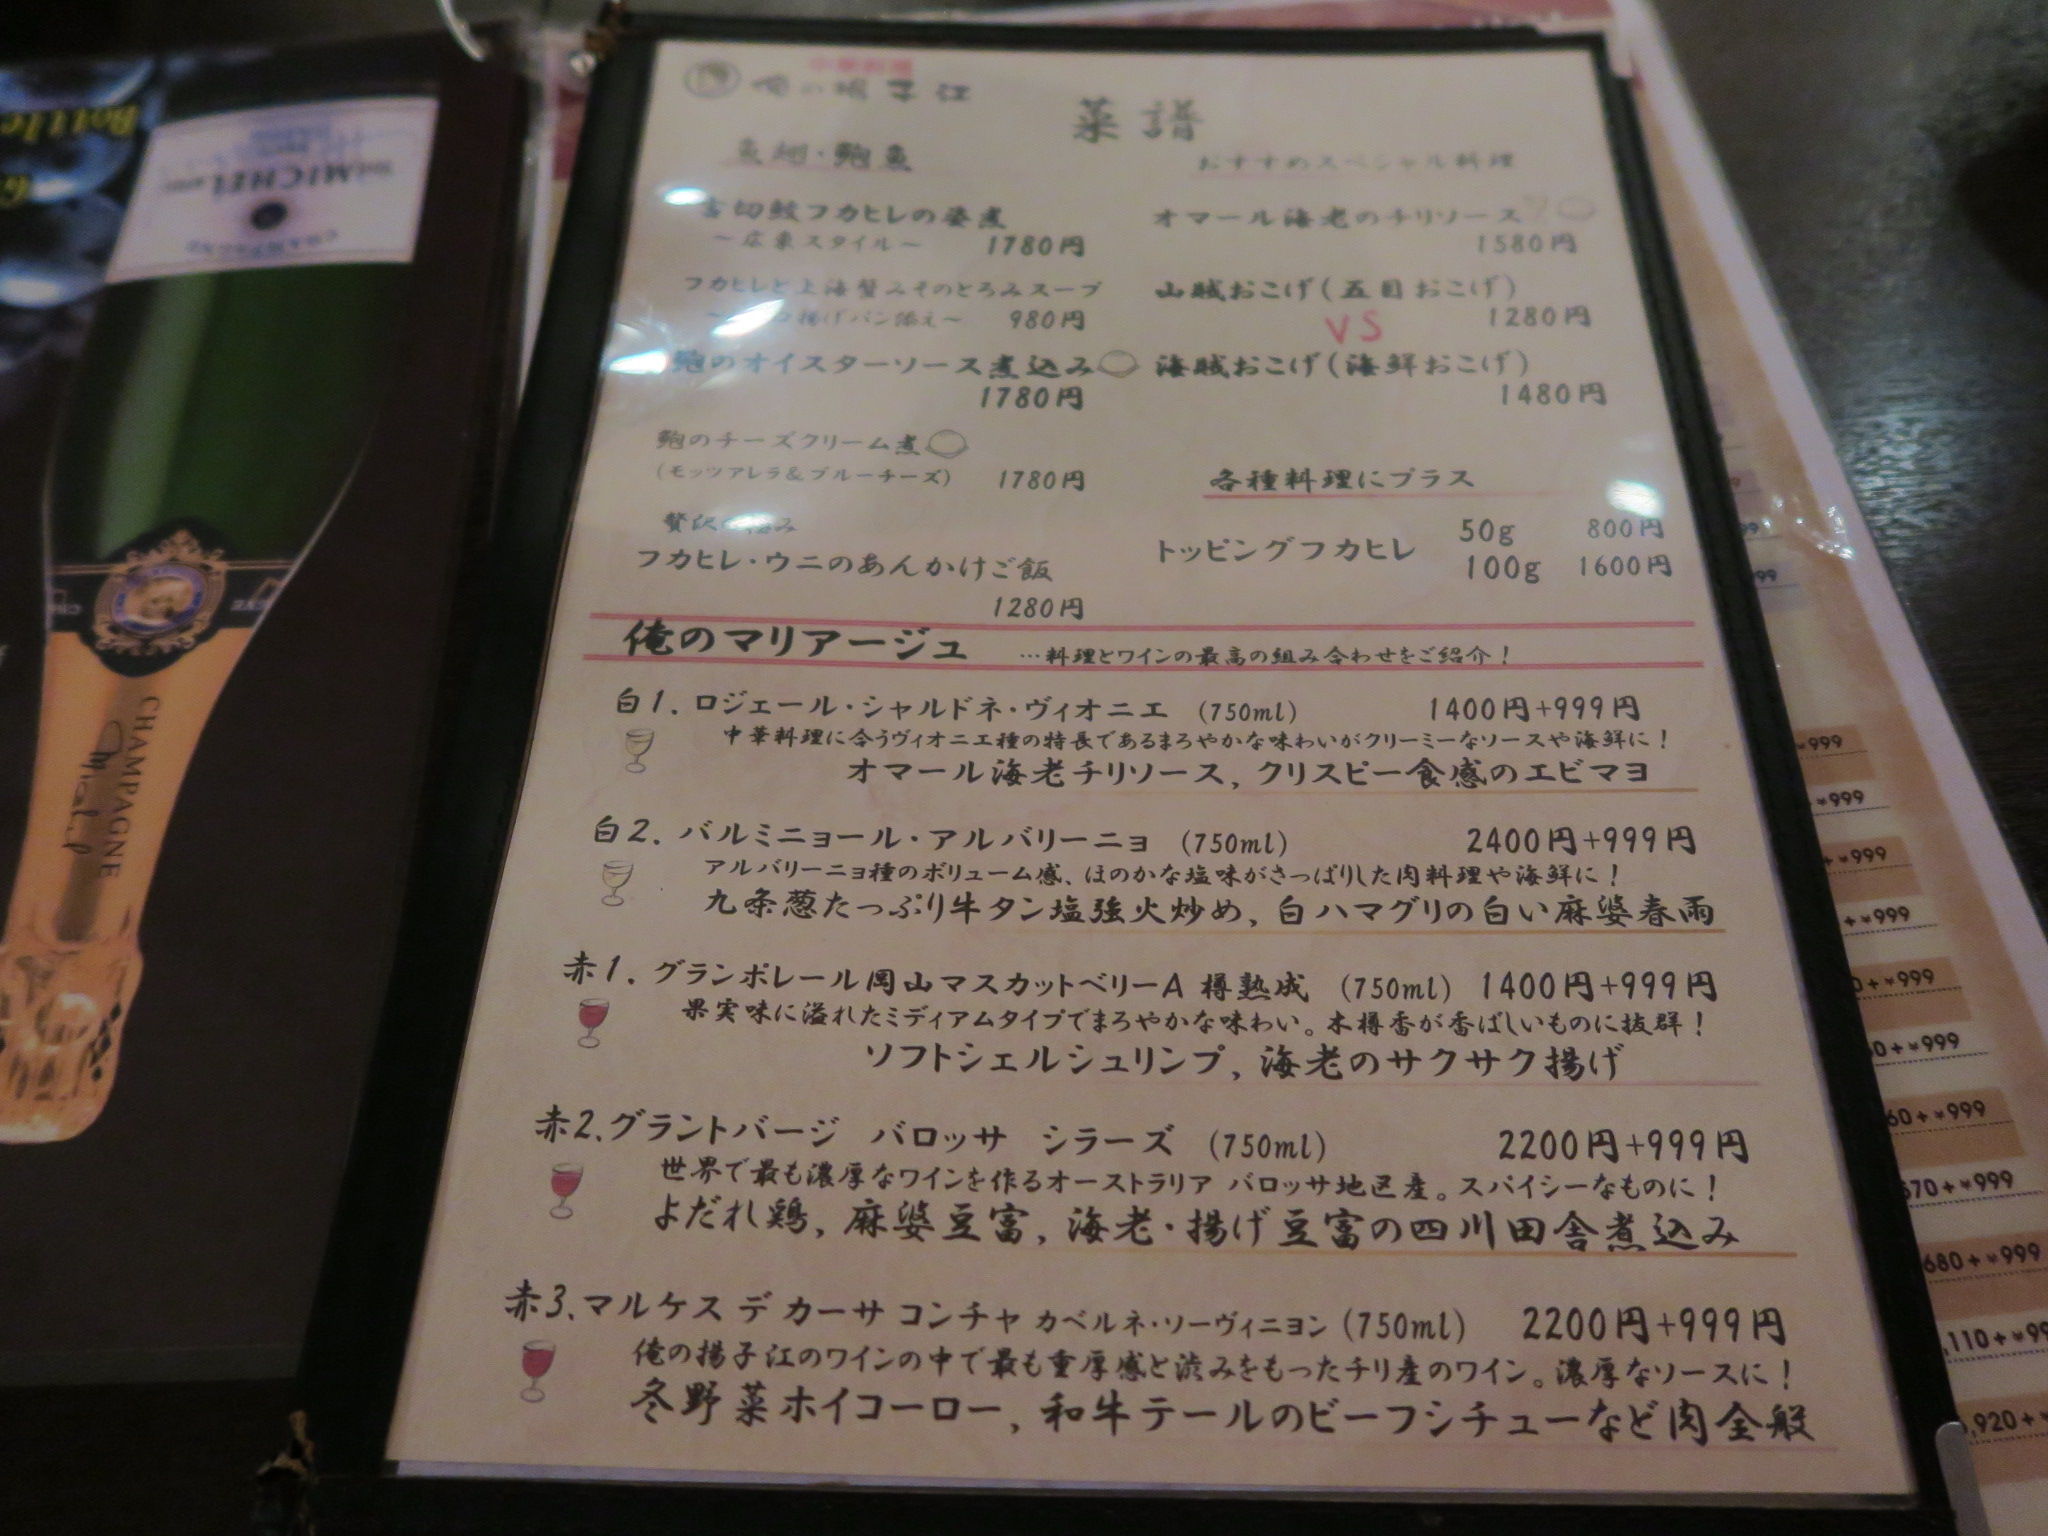 中華料理
俺の揚子江
菜譜
魚翅・鮑魚
吉切鮫フカヒレの姿煮
〜広東スタイル〜 1780円
フカヒレと上海蟹みそのとろみスープ
揚げパン添え〜 980円
鮑のオイスターソース煮込み
1780円
鮑のチーズクリーム煮
(モッツアレラ&ブルーチーズ) 1780円
贅沢
フカヒレ・ウニのあんかけご飯
1280円
おすすめスペシャル料理
オマール海老のチリソース
1580円
山賊おこげ(五目おこげ)
VS 1280円
海賊おこげ(海鮮おこげ)
1480円
各種料理にプラス
トッピングフカヒレ 50g 800円
100g 1600円
俺のマリアージュ …料理とワインの最高の組み合わせをご紹介!
白1. ロジェール・シャルドネ・ヴィオニエ (750ml) 1400円+999円
中華料理に合うヴィオニエ種の特長であるまろやかな味わいがクリーミーなソースや海鮮に!
オマール海老チリソース, クリスピー食感のエビマヨ
白2. バルミニョール・アルバリーニョ (750ml) 2400円+999円
アルバリーニョ種のボリューム感、ほのかな塩味がさっぱりした肉料理や海鮮に!
九条葱たっぷり牛タン塩強火炒め, 白ハマグリの白い麻婆春雨
赤1. グランポレール岡山マスカットベリーA 樽熟成 (750ml) 1400円+999円
果実味に溢れたミディアムタイプでまろやかな味わい。木樽香が香ばしいものに抜群!
ソフトシェルシュリンプ, 海老のサクサク揚げ
赤2. グラントバージ バロッサ シラーズ (750ml) 2200円+999円
世界で最も濃厚なワインを作るオーストラリア バロッサ地区産。スパイシーなものに!
よだれ鶏, 麻婆豆富, 海老・揚げ豆富の四川田舎煮込み
赤3. マルケス デ カーサ コンチャ カベルネ・ソーヴィニヨン (750ml) 2200円+999円
俺の揚子江のワインの中で最も重厚感と渋みをもったチリ産のワイン。濃厚なソースに!
冬野菜ホイコーロー, 和牛テールのビーフシチューなど肉全般
Bottle
MICHEL
CHAMPAGNE
CHAMPAGNE
¥999
+¥999
+¥999
+¥999
0+¥999
0+¥999
60+¥999
670+¥999
680+¥999
,110+¥99
,920+¥